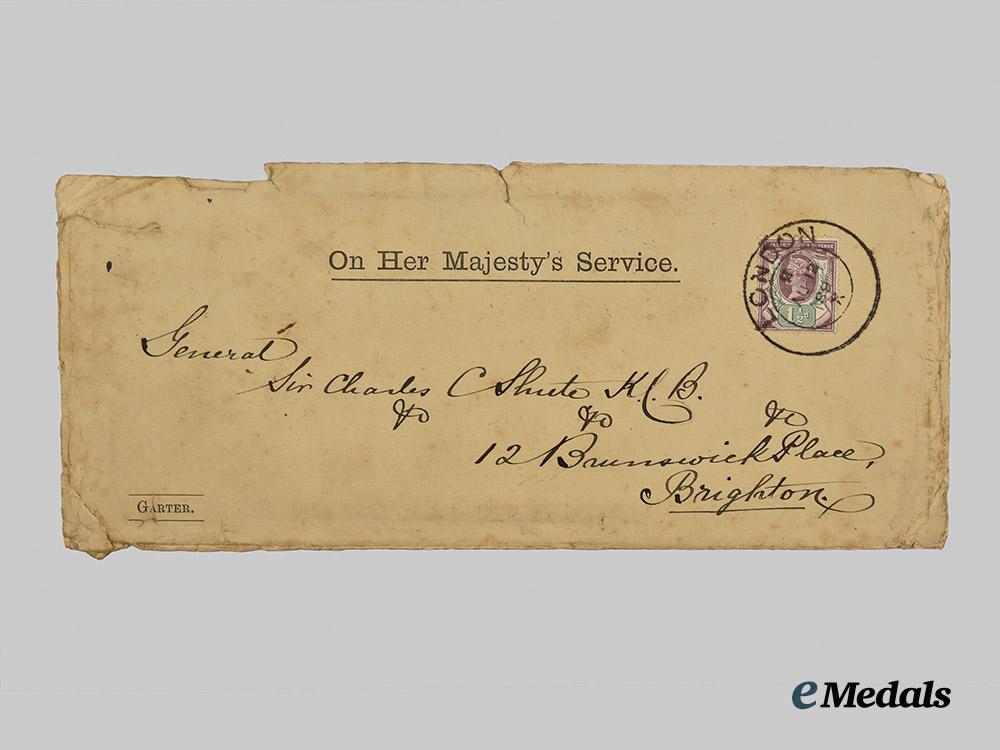 On Her Majesty's Service.
LONDON
89
1½d
General
Sir Charles C Shute K.C.B.
&c &c &c
12 Brunswick Place,
Brighton.
GARTER.
eMedals